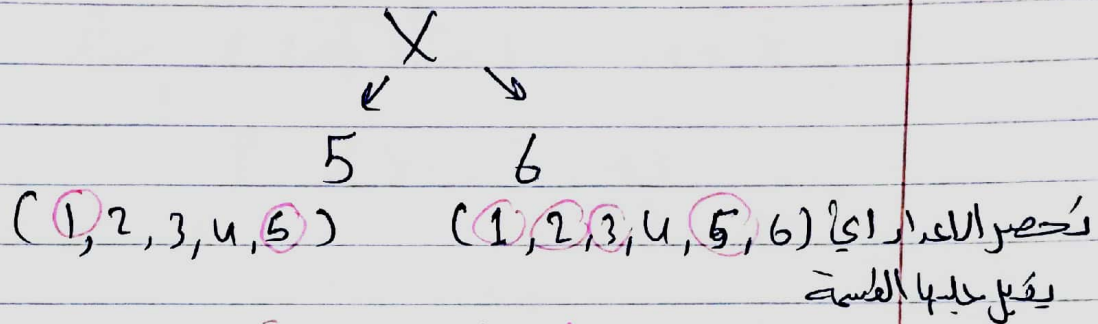 X
5 6
(1, 2, 3, 4, 5) (1, 2, 3, 4, 5, 6) نحصر الاعداد اي
يقبل عليها القسمة